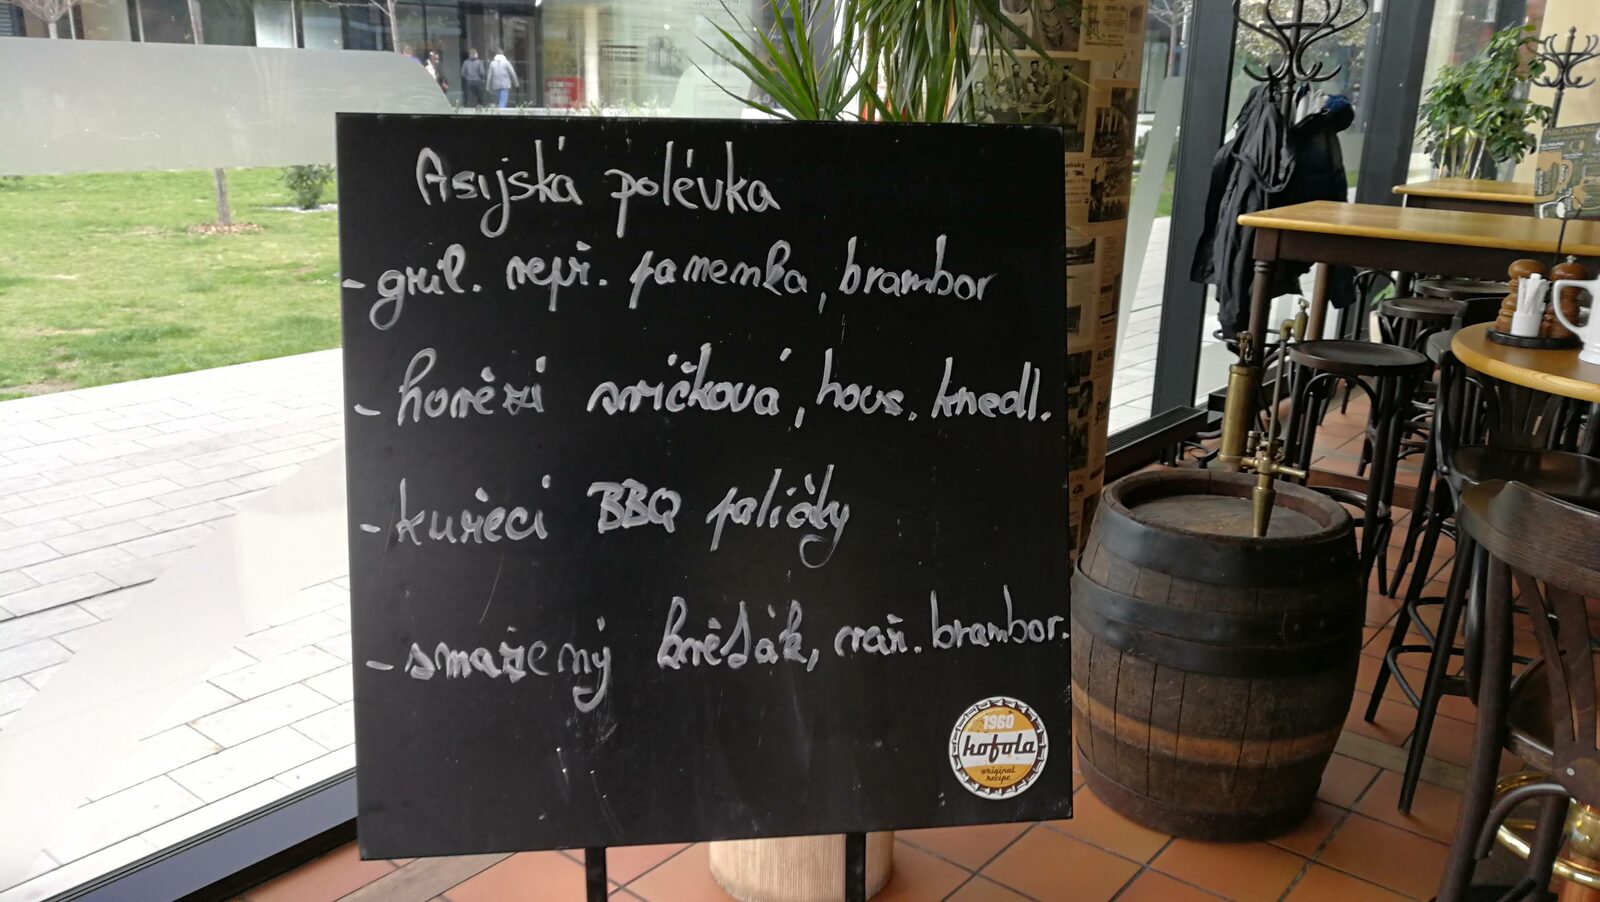 Asijská polévka
- gril. vepř. panenka, brambor
- hovězí svíčková, hous. knedl.
- kuřecí BBQ paličky
- smažený hněšák, vař. brambor.
1960
kofola
original
recipe